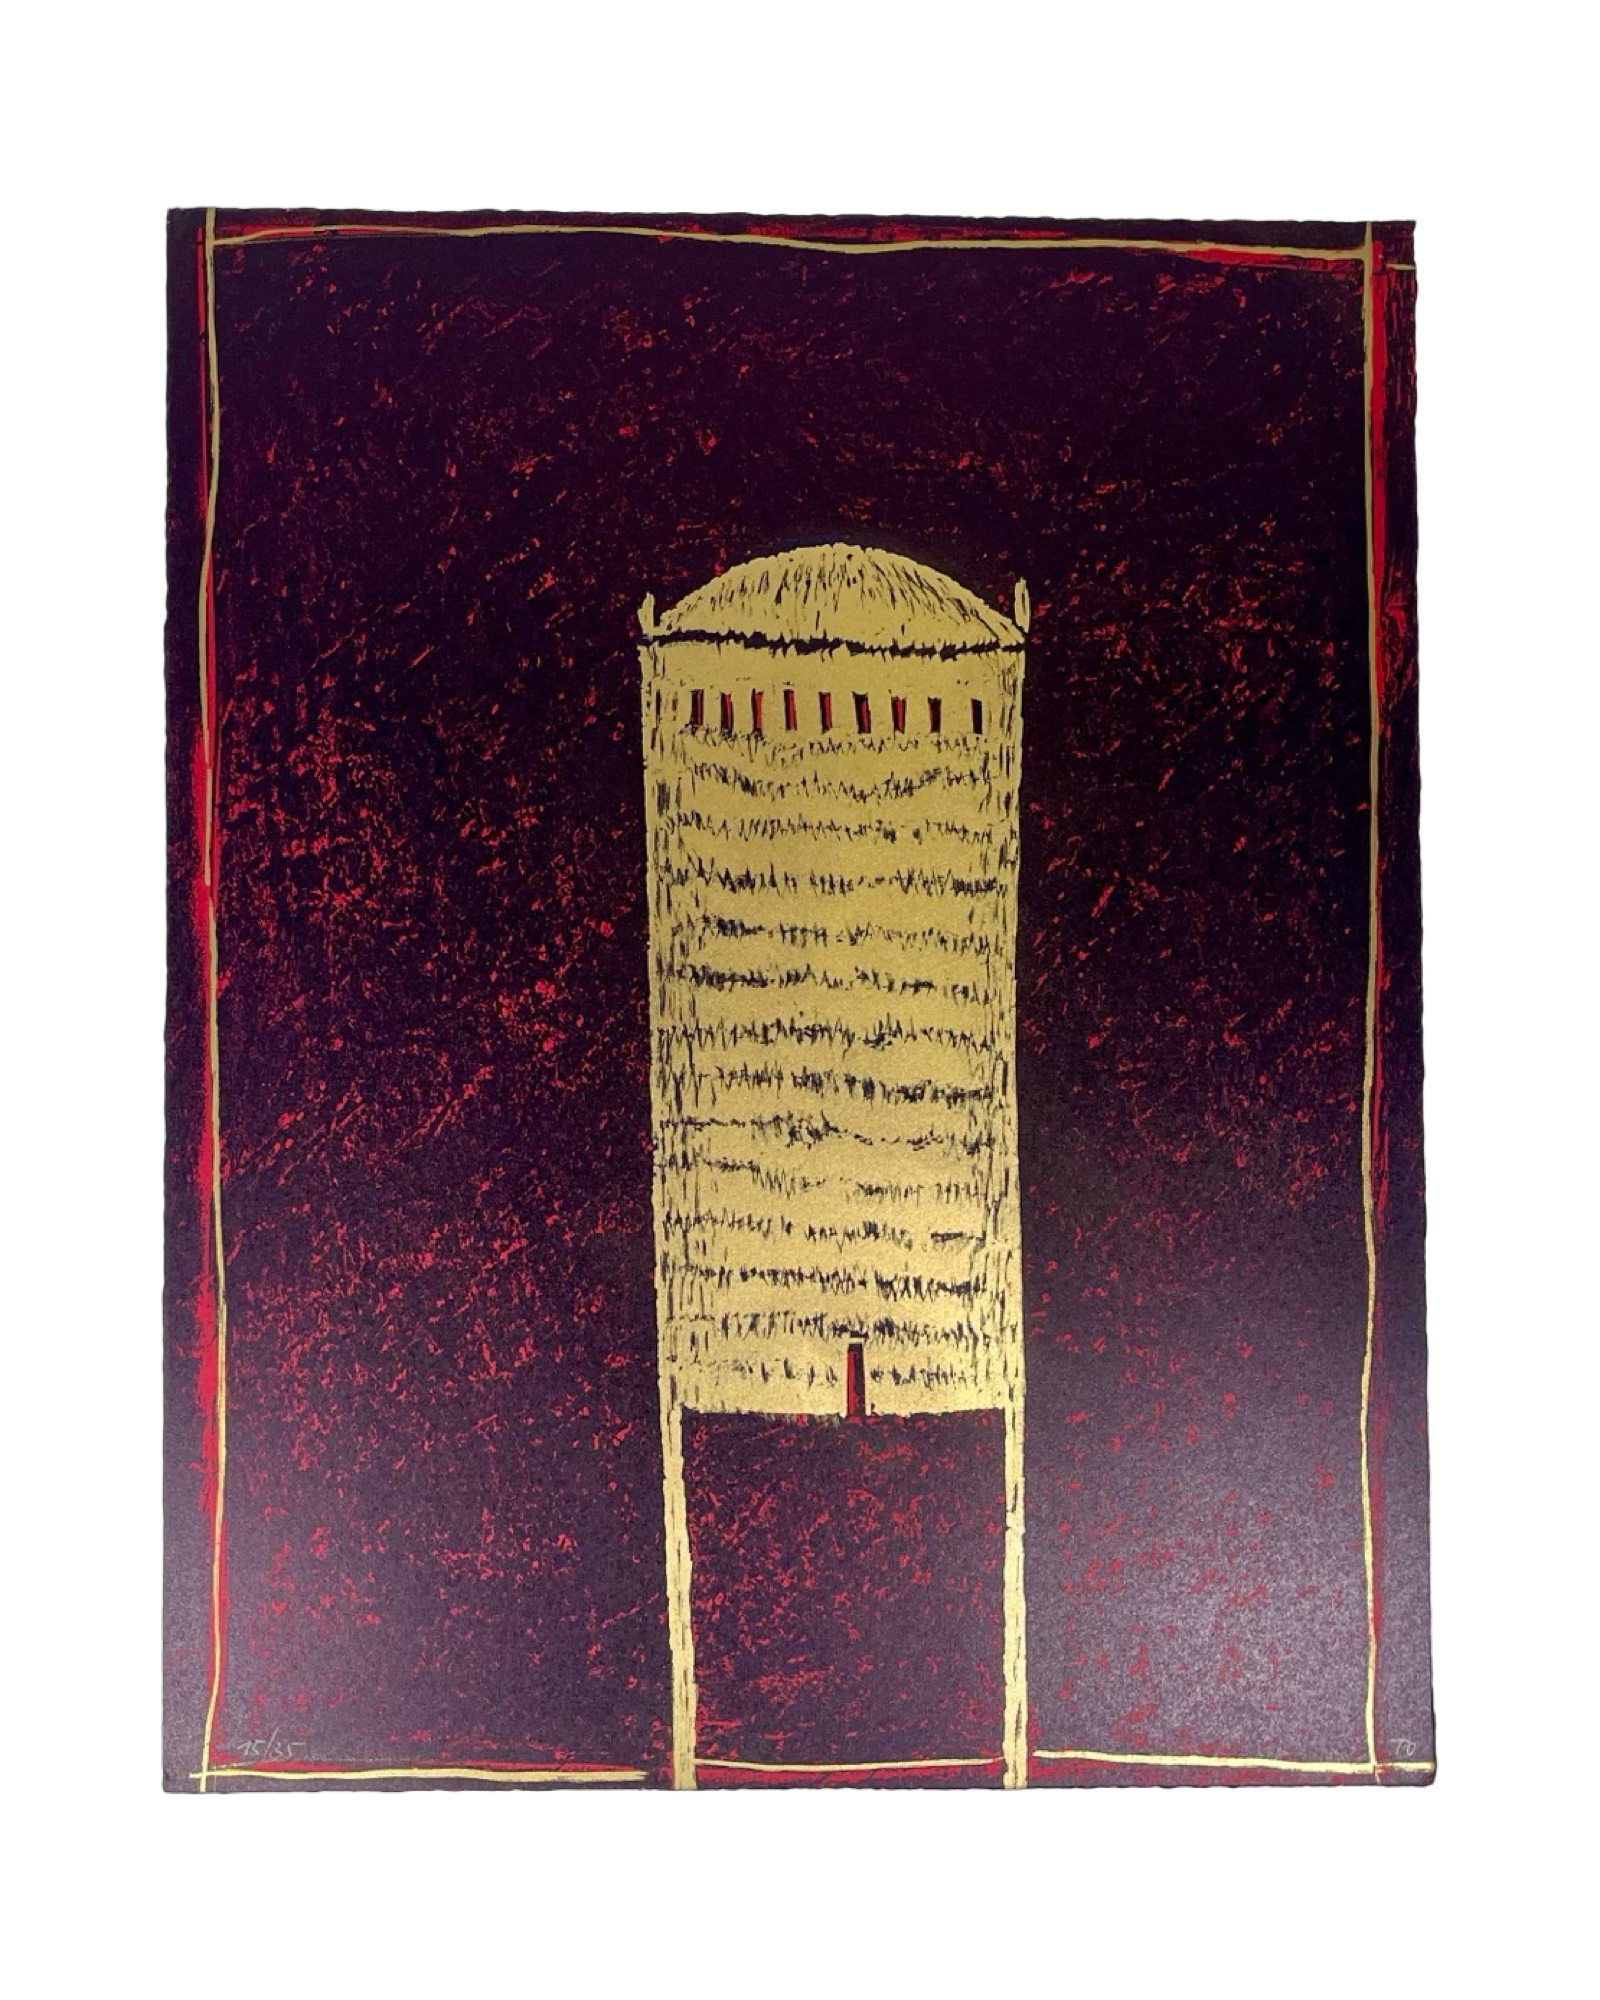 15/35
TO